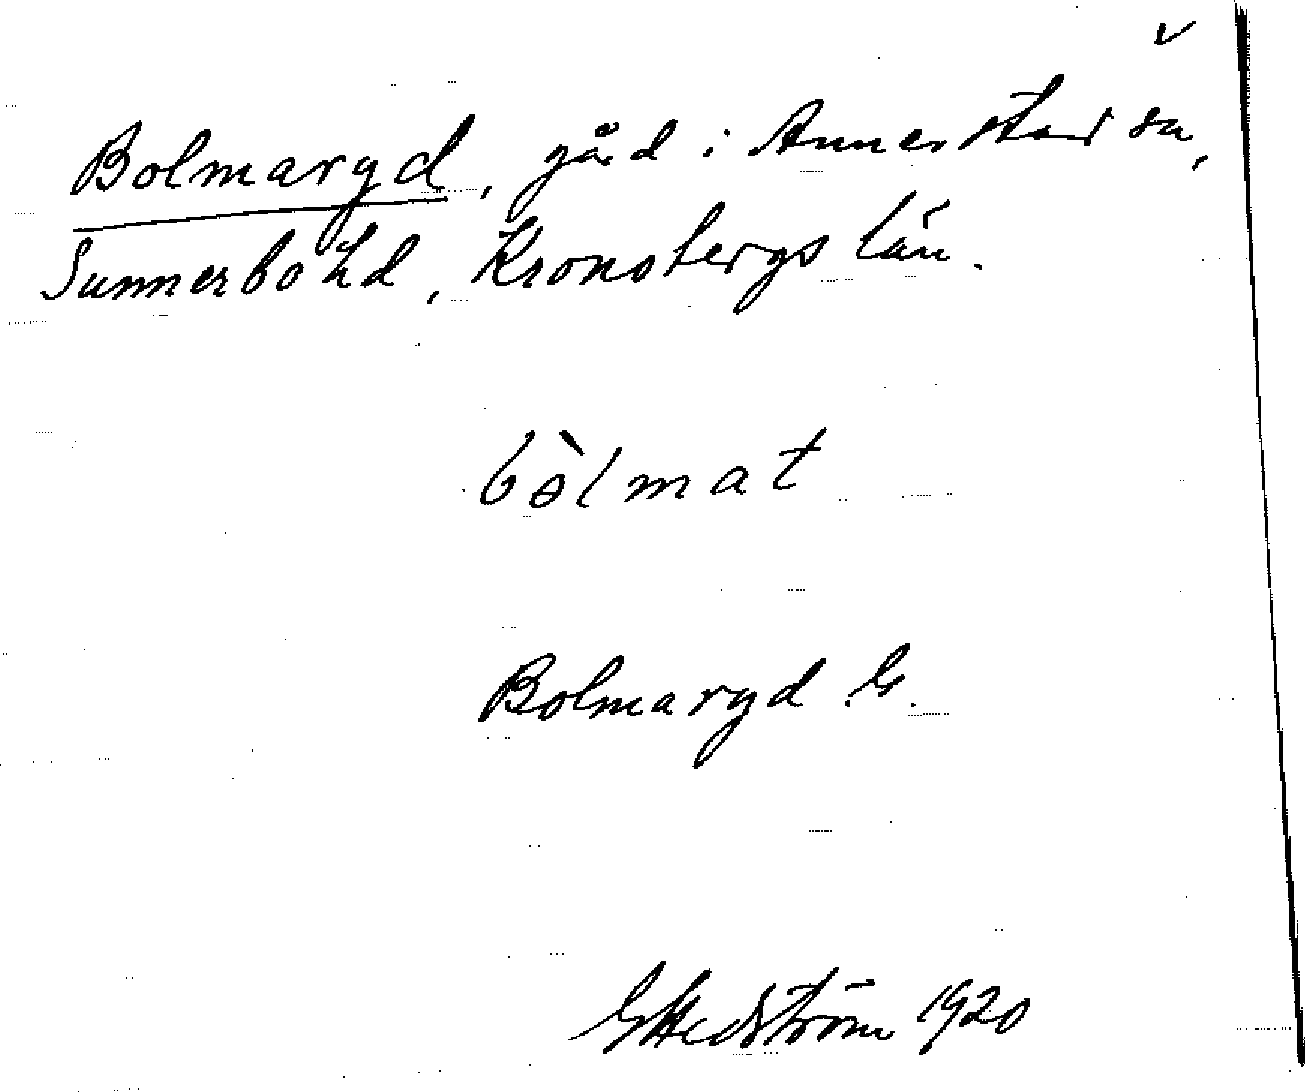 Bolmaryd, gård i Annerstad sn,
Sunnerbo hd, Kronobergs län.
bòlmat
Bolmaryd G.
GHedström 1920